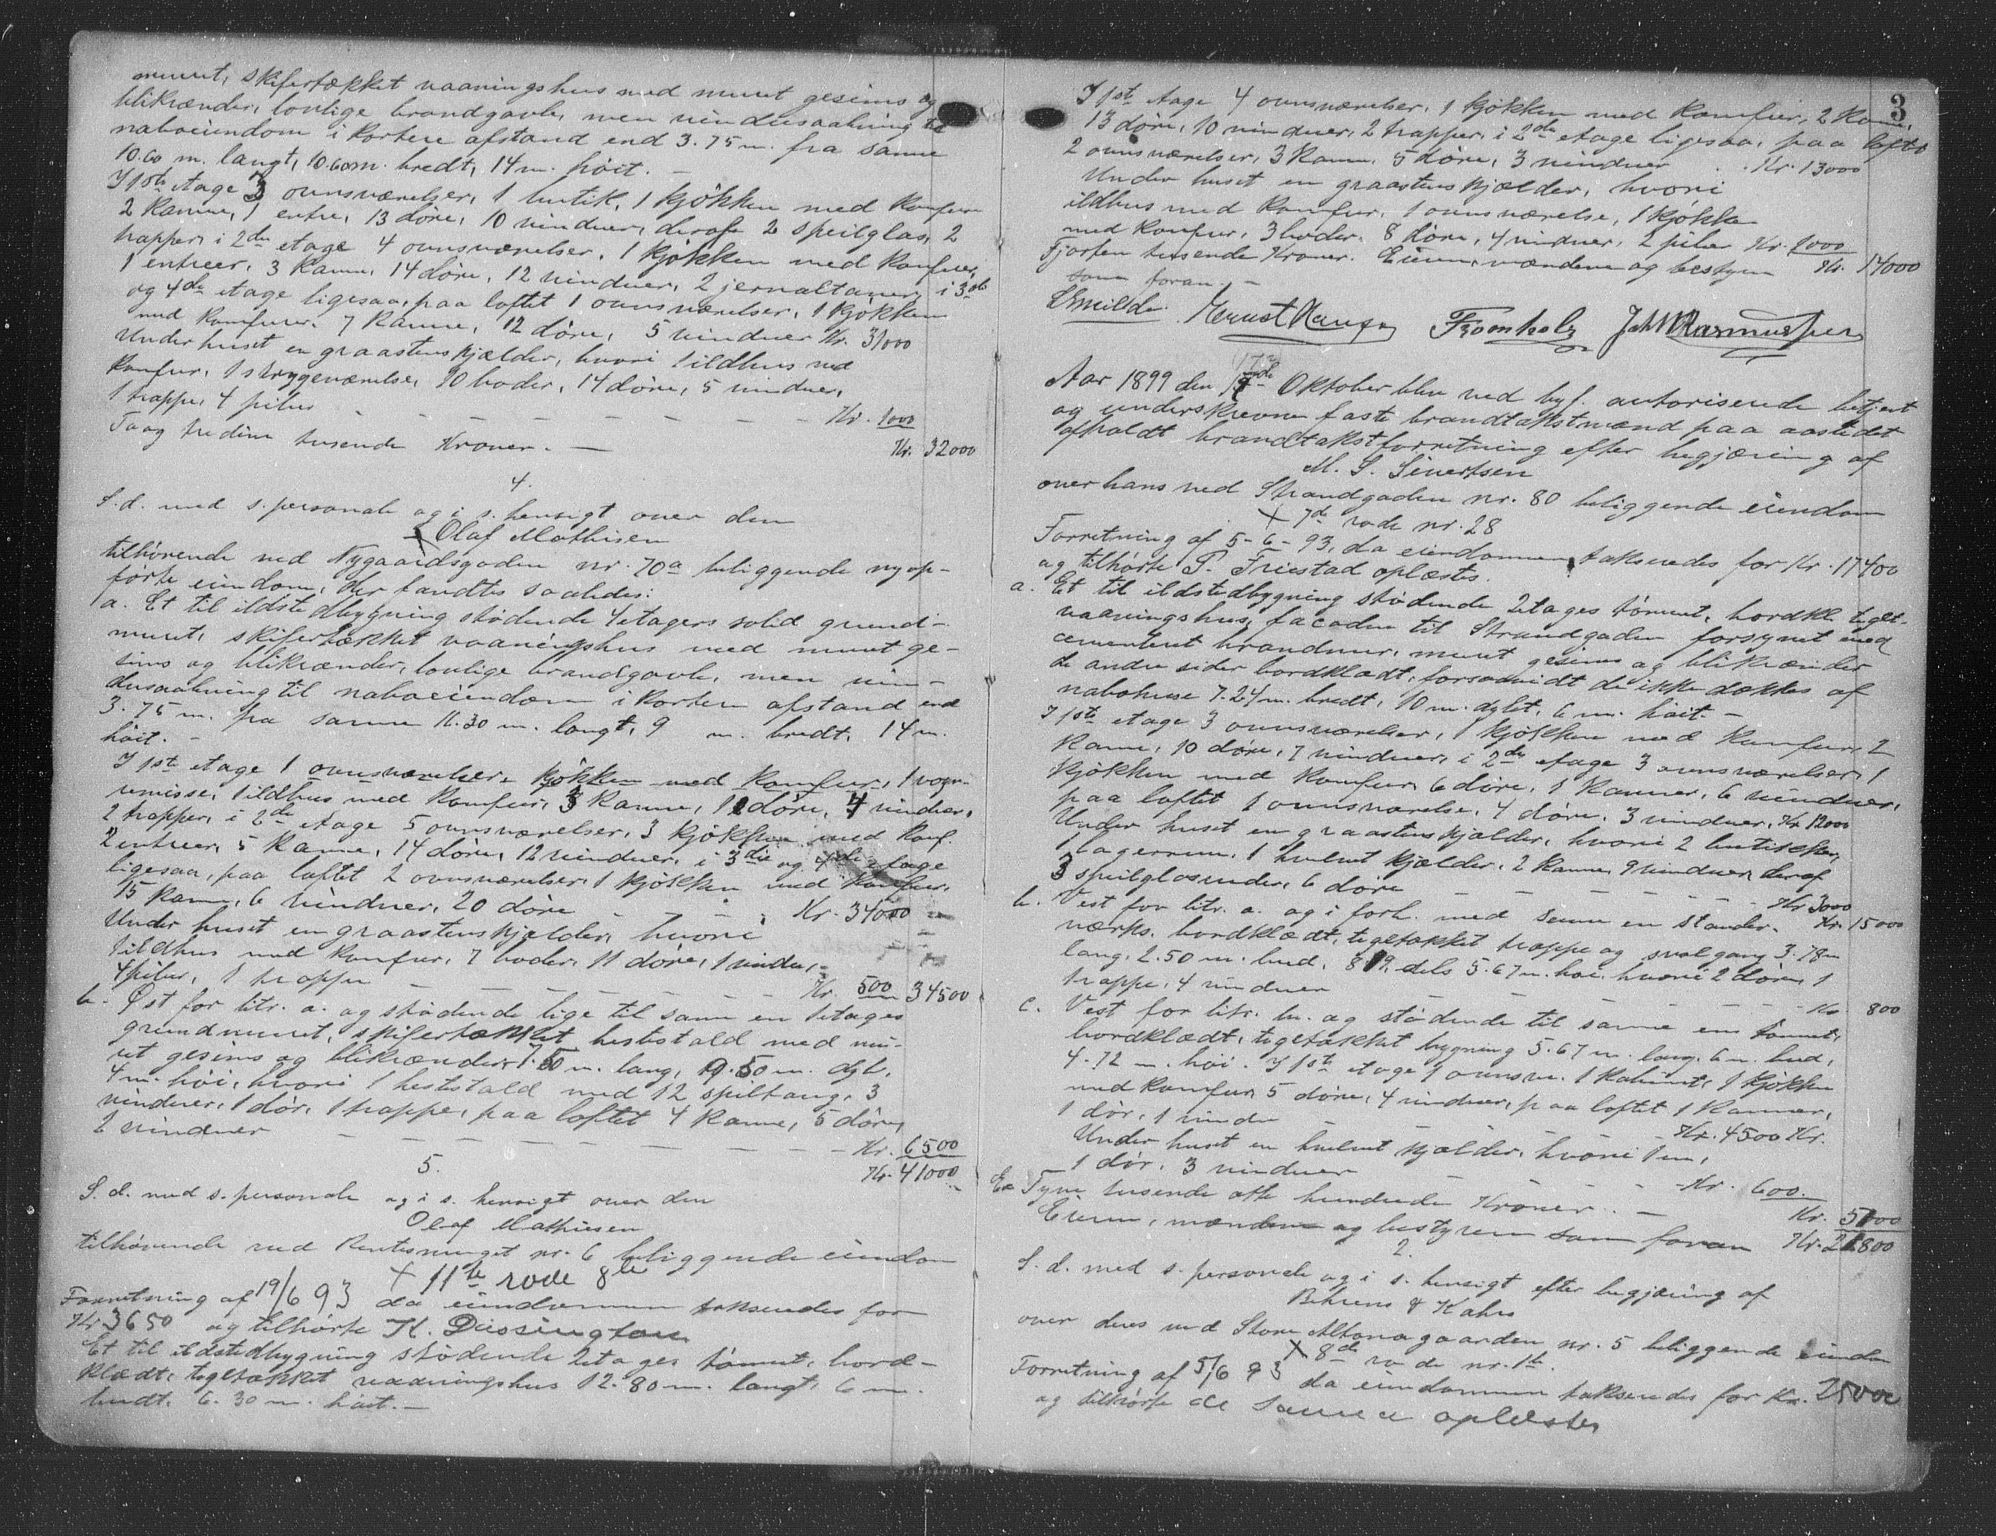 muret, skifertækket vaaningshus med muret gesims og
blikrænder, lovlige brandgavle, men vinduesaabning til
naboeiendom i kortere afstand end 3.75 m. fra samme
10.60 m. langt, 10.60 m. bredt, 14 m. høit. —
I 1ste etage 3 ovnsværelser, 1 butik, 1 kjøkken med komfur
2 kamre, 1 entre, 13 døre, 10 vinduer, deraf 2 speilglas, 2
trapper, i 2den etage 4 ovnsværelser, 1 kjøkken med komfur,
1 entreer, 3 kamre, 14 døre, 12 vinduer, 2 jernaltaner, i 3die
og 4de etage ligesaa, paa loftet 1 ovnsværelser, 1 kjøkken
med komfurer, 7 kamre, 12 døre, 5 vinduer Kr. 31000
Under huset en graastenskjælder, hvori 1 ildhus med
komfur, 1 strygeværelse, 10 boder, 14 døre, 5 vinduer,
1 trappe, 4 piber — — — — — — Kr. 1000
To og tredive tusende Kroner. — Kr. 32000
4.
S. d. med s. personale og i s. hensigt over den
Olaf Mathisen
tilhørende ved Nygaardsgaden nr. 70a beliggende nyop-
førte eiendom. Her fandtes saaledes:
a. Et til ildstedbygning stødende 4 etagers solid grund-
muret, skifertækket vaaningshus med muret ge-
sims og blikrænder, lovlige brandgavle, men vin-
duesaabning til naboeiendom i kortere afstand end
3.75 m. fra samme 11.30 m. langt, 9 m. bredt, 14 m.
høit. —
I 1ste etage 1 ovnsværelser, kjøkken med komfur, 1 vogn-
remisse, 1 ildhus med komfur, 3 kamre, 1 døre, 4 vinduer,
2 trapper, i 2den etage 5 ovnsværelser, 3 kjøkken med komf.
2 entreer, 5 kamre, 14 døre, 12 vinduer, i 3die og 4de etage
ligesaa, paa loftet 2 ovnsværelser, 1 kjøkken med komfur,
15 kamre, 6 vinduer, 20 døre — — Kr. 34000
Under huset en graastenskjælder, hvori
1 ildhus med komfur, 7 boder, 11 døre, 1 vindu,
4 piber, 1 trappe — — — — — Kr. 500 34500
b. Øst for litr. a. og stødende lige til samme en 1 etages
grundmuret, skifertækket heststald med mu-
ret gesims og blikrænder, 7.50 m. lang, 9.50 m. dyb,
4 m. høi, hvori 1 heststald med 12 spiltaug, 3
vinduer, 1 dør, 1 trappe, paa loftet 4 kamre, 5 døre,
2 vinduer — — — — — — Kr. 6500
Kr. 41000
5.
S. d. med s. personale og i s. hensigt over den
Olaf Mathiesen
tilhørende ved Rentesmuget nr. 6 beliggende eiendom
+ 11te rode 8te
Forretning af 19/6 93 da eiendommen taksendes for
Kr 3650 og tilhørte H. Dissington
Et til ildstedbygning stødende 2 etages tømret, bord-
klædt, tegltækket vaaningshus 12.80 m. langt, 6 m.
bredt, 6.30 m. høit. —
3
I 1ste etage 4 ovnsværelser, 1 kjøkken med komfur, 2 kamre,
13 døre, 10 vinduer, 2 trapper, i 2den etage ligesaa, paa loftet
2 ovnsværelser, 3 kamre, 5 døre, 3 vinduer Kr. 13000
Under huset en graastenskjælder, hvori
ildhus med komfur, 1 ovnsværelse, 1 kjøkken
med komfur, 3 boder, 8 døre, 4 vinduer, 2 piber Kr. 1000
Fjorten tusende Kroner. Eieren, mændene og bestyren Kr. 14000
som foran. —
Smilde Ernst Hansen Fromholz Joh Rasmussen
Aar 1899 den 17de Oktober blev ved byf. autoriserede betjent
og underskrevne faste brandtakstmænd paa aastedet
afholdt brandtakstforretning efter begjæring af
M. S. Sivertsen
over hans ved Strandgaden nr. 80 beliggende eiendom
+ 7de rode nr. 28
Forretning af 5-6-93, da eiendommen taksendes for Kr. 17400
og tilhørte P. Friestad oplæstes.
a. Et til ildstedbygning stødende 2 etages tømret, bordkl. teglt.
vaaningshus, facaden til Strandgaden forsynet med
cementeret brandmur, muret gesims og blikrænder
de andre sider bordklædt, forsaavidt de ikke dækkes af
nabohuse 7.24 m. bredt, 10 m. dybt, 6 m. høit. —
I 1ste etage 3 ovnsværelser, 1 kjøkken med komfur, 2
kamre, 10 døre, 7 vinduer, i 2den etage 3 ovnsværelser, 1
kjøkken med komfur, 6 døre, 1 kammer, 6 vinduer,
paa loftet 1 ovnsværelse, 4 døre, 3 vinduer, Kr 12000
Under huset en graastenskjælder, hvori 2 butikker,
1 lagerrum, 1 hvelvet kjælder, 2 kamre, 9 vinduer, deraf
3 speilglasruder, 6 døre — — — — Kr 3000
b. Vest for litr. a. og i forb. med samme en stander- Kr. 15000
værks, bordklædt, tegltækket trappe og svalgang 3.78 m
lang, 2.50 m. bred, 8.19, dels 5.67 m. høi, hvori 2 døre, 1
trappe, 4 vinduer — — — — — Kr 800
c. Vest for litr. b. og stødende til samme en tømret,
bordklædt, tegltækket bygning 5.67 m. lang, 6 m. bred,
4.72 m. høi. I 1ste etage 1 ovnsv. 1 kabinet, 1 kjøkken
med komfur, 5 døre, 4 vinduer, paa loftet 1 kammer,
1 dør, 1 vindu — — — Kr. 4500 Kr.
Under huset en hvelvet kjælder, hvori 1 rum,
1 dør, 3 vinduer — — — — Kr. 600.
En Tyve tusende otte hundrede Kroner. — Kr. 5100
Eieren, mændene og bestyren som foran Kr. 21800
2.
S. d. med s. personale og i s. hensigt efter begjæring af
Behrens & Kahrs
over deres ved Store Altonagaarden nr. 5 beliggende eiendom
+ 8de rode nr. 1b.
Forretning af 5/6 93 da eiendommen taksendes for Kr. 25000
og tilhørte de samme oplæstes